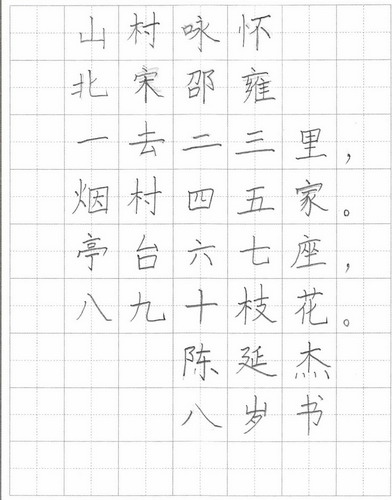 山村咏怀
北宋邵雍
一去二三里，
烟村四五家。
亭台六七座，
八九十枝花。
陈延杰
八岁书